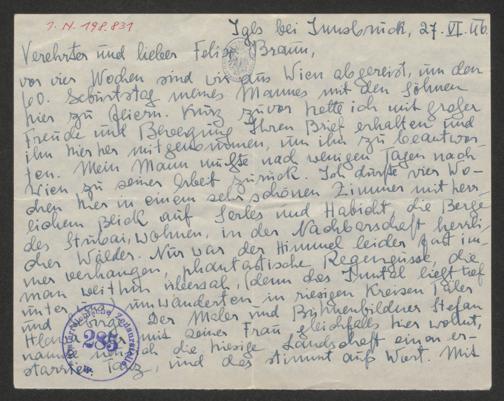 I. N. 198.831
Igls bei Innsbruck, 27. VI. 46.
Verehrter und lieber Felix Braun,
vor vier Wochen sind wir aus Wien abgereist, um den
60. Geburtstag meines Mannes mit den Söhnen
hier zu feiern. Kurz zuvor hatte ich mit großer
Freude und Bewegung Ihren Brief erhalten und
ihn hierher mitgenommen, um ihn zu beantwor-
ten. Mein Mann mußte nach wenigen Tagen nach
Wien zu seiner Arbeit zurück. Ich durfte vier Wo-
chen hier in einem sehr schönen Zimmer mit herr-
lichem Blick auf Serles und Habicht, die Berge
des Stubai, wohnen, in der Nachbarschaft herrli-
cher Wälder. Nur war der Himmel leider fast im-
mer verhangen, phantastische Regengüsse, die
man weithin übersah, (denn das Inntal liegt tief
unter uns) umwanderten in riesigen Kreisen Täler
und Der Maler und Bühnenbildner Stefan
Hlawa, der mit seiner Frau gleichfalls hier wohnt,
nannte die hiesige Landschaft einen er-
starrten Tanz, und das stimmt aufs Wort. Mit
285